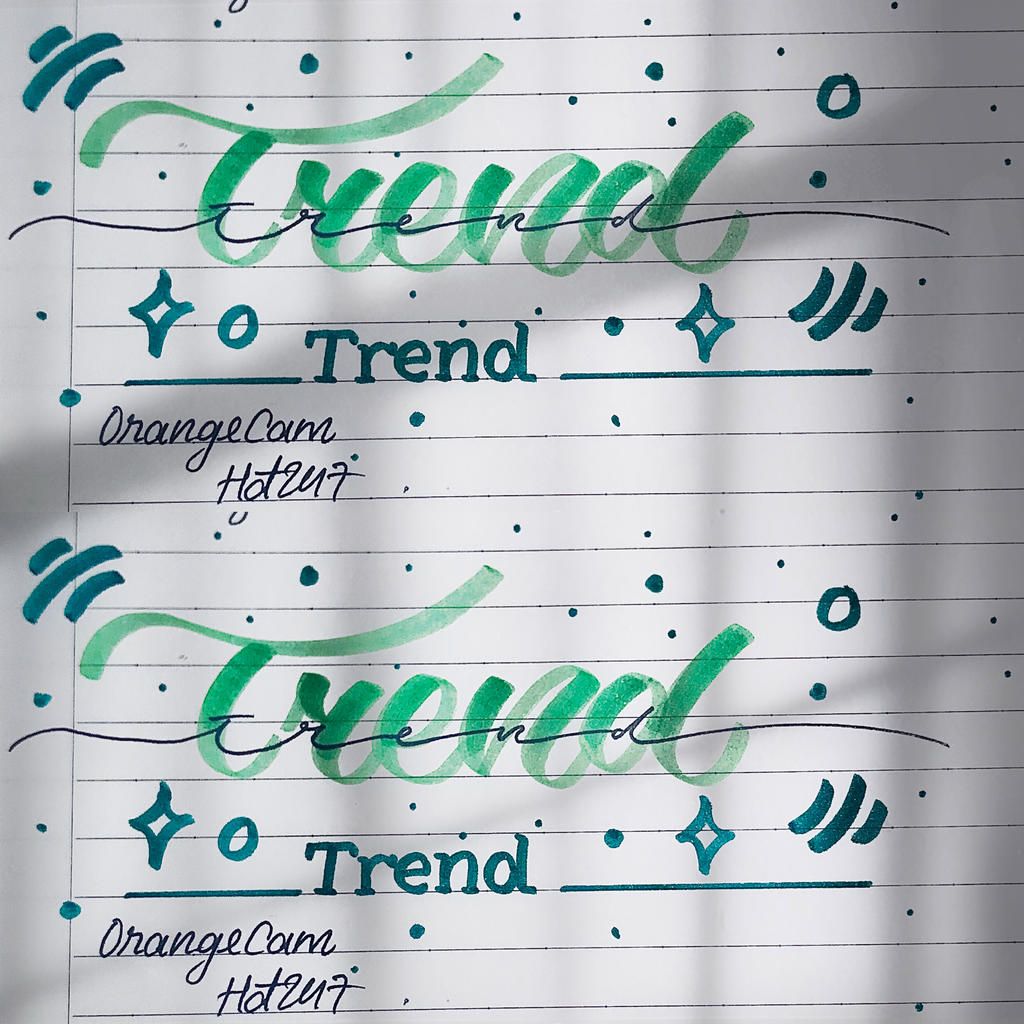 Trend
Trend
Trend
OrangeCam
Hot247
Trend
Trend
Trend
OrangeCam
Hot247